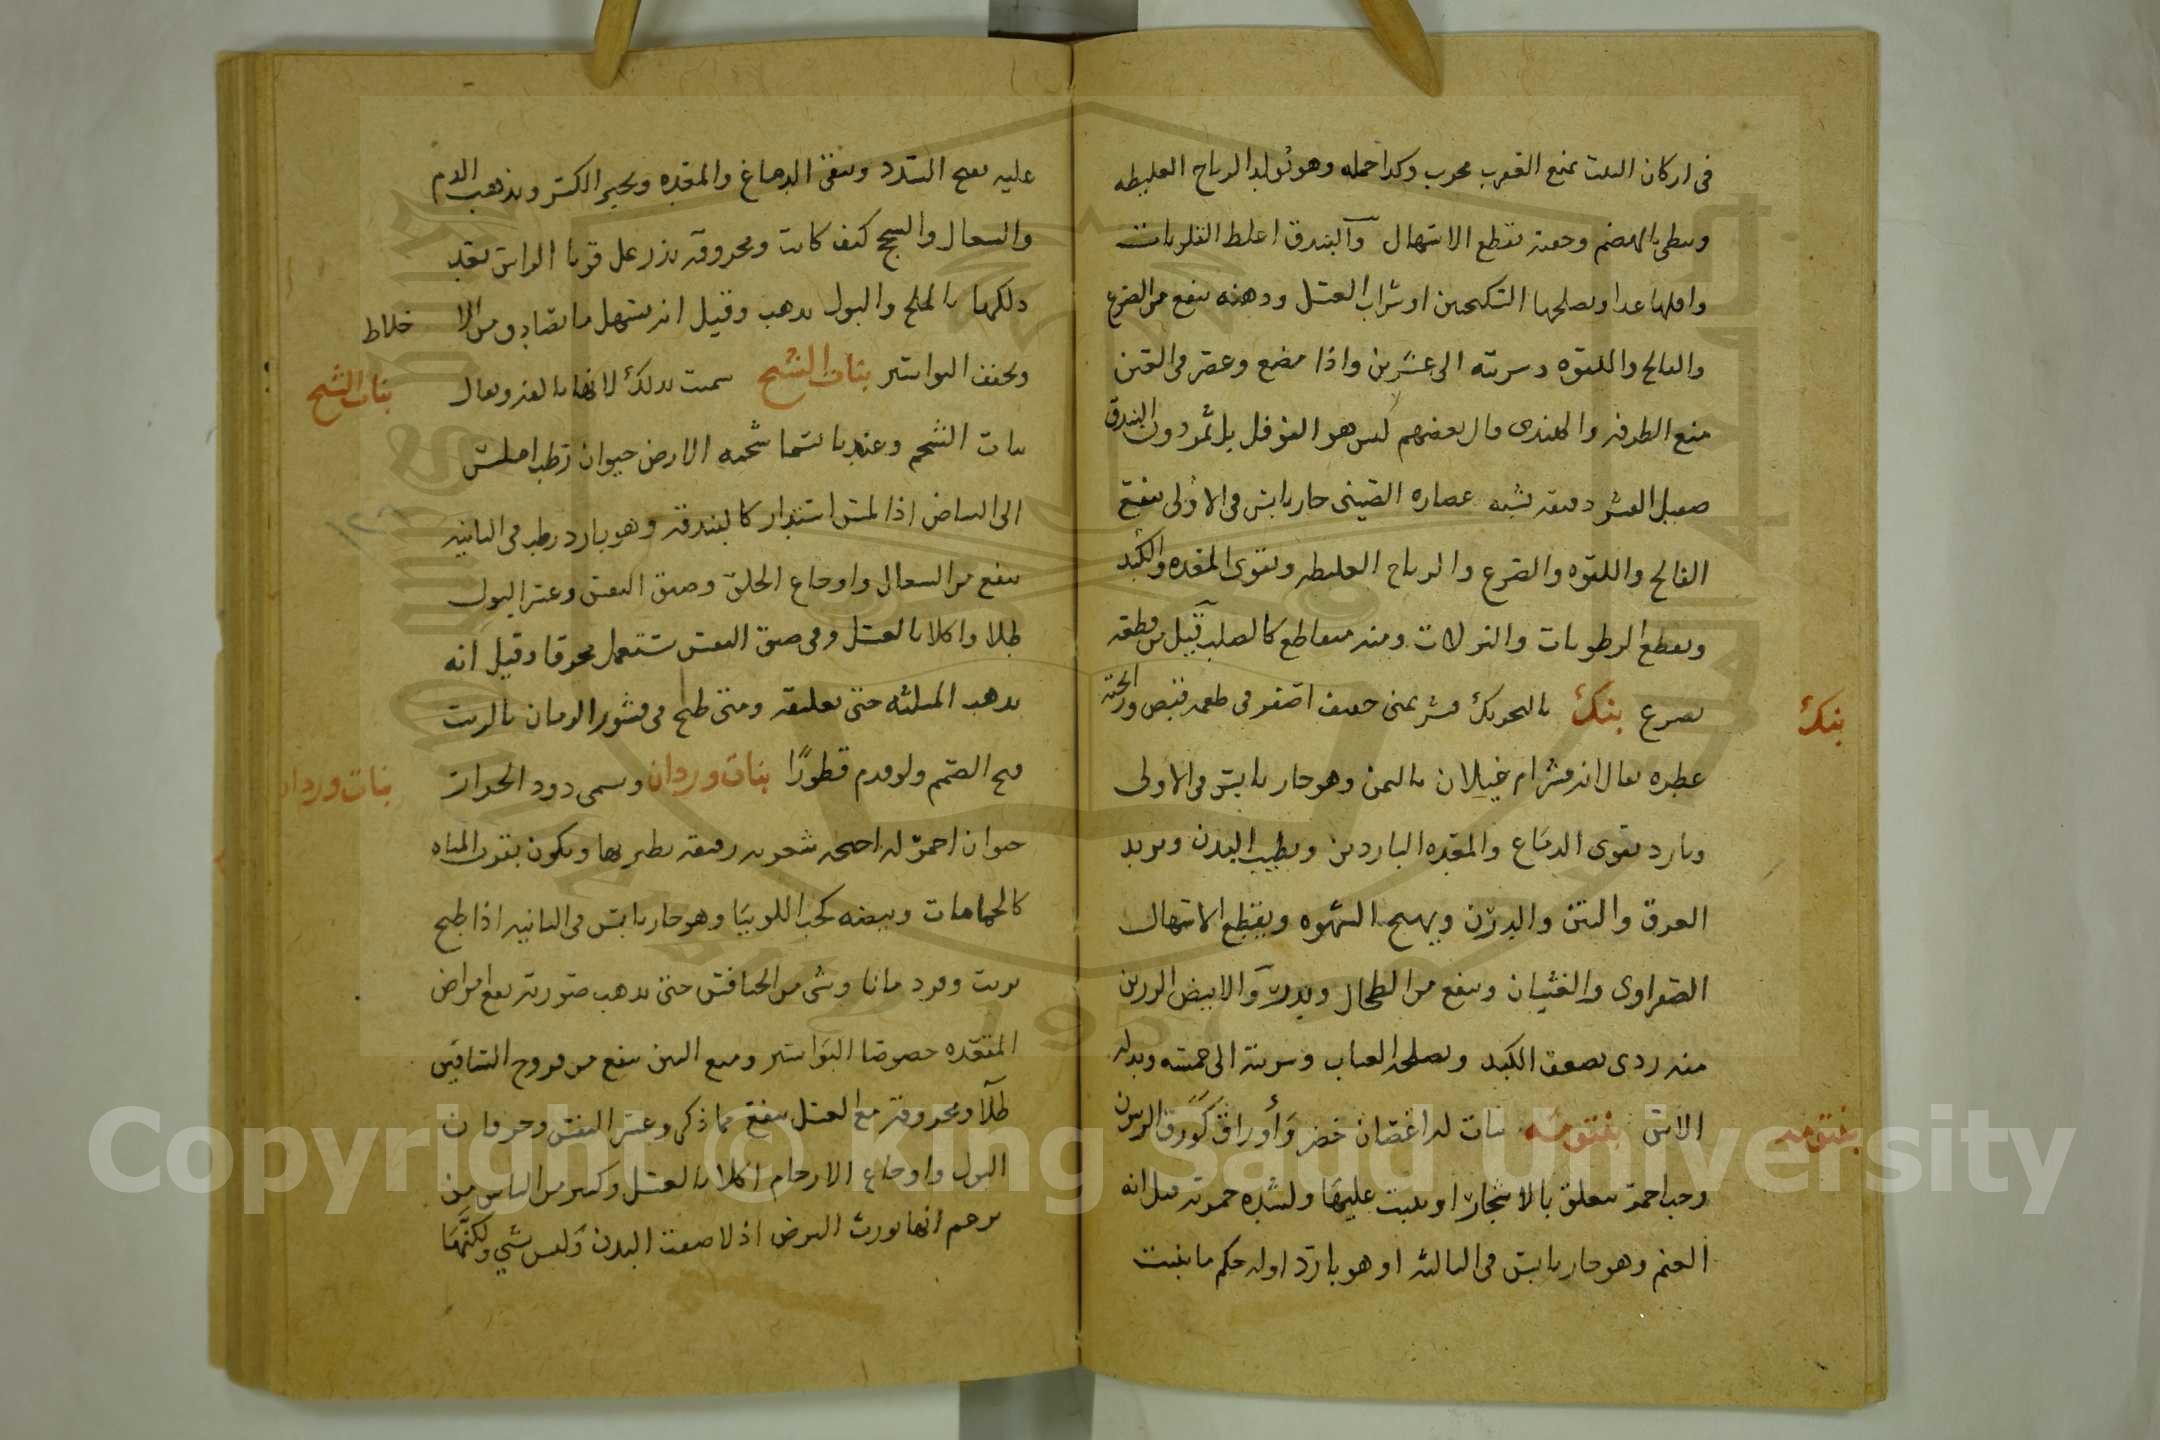 في اركان البيت يمنع العقرب مجرب وكذا حمله وهو يولد الرياح الغليظه
ويبطي بالهضم وجفته تقطع الاسهال والبندق اغلظ القلوبات
واقلها غذا ويصلحها السكنجبين او شراب العسل ودهنه ينفع من الصرع
والفالج واللقوه وشربته الى عشرين واذا مضغ وعصر في العين
منع الطرفه والهندي قال بعضهم ليس هو الفوفل بل ثمر دون البندق
صقيل القشر دقيقه يشبه عصاره الصيني حار يابس في الاولى ينفع
الفالج واللقوه والصرع والرياح الغليظه ويقوى المعده والكبد
ويقطع الرطوبات والنزلات ومنه مقاطع كالصليب قيل من قطعه
يصرع بنك بالتحريك قشر يمني خفيف اصفر في طعمه قبض ورائحته
عطره يقال انه قشر ام غيلان باليمن وهو حار يابس في الاولى
وبارد يقوى الدماغ والمعده الباردين ويطيب البدن ويزيد
العرق والنتن والدرن ويهيج الشهوه ويقطع الاسهال
الصفراوى والغثيان وينفع من الطحال ويدر والابيض الرزين
منه ردى يضعف الكبد ويصلحه العناب وشربته الى خمسه وبدله
الاس بنتومه نبات له اغصان خضر وأوراق كورق الزيتون
وحب احمر يتعلق بالاشجار او ينبت عليها ولشده حمرته قيل انه
العنم وهو حار يابس في الثالثه او هو بارد اوله حكم ما ينبت
بنك
بنتومه
عليه يفتح السدد وينقي الدماغ والمعده ويجبر الكسر ويذهب الدم
والسعال والسحج كيف كانت ومحروقه يذر على قربا الراس بعد
دلكها بالملح والبول يذهب وقيل انه يسهل ما يصادف من الا خلاط
ويجفف البواسير بنات الشيح سميت بذلك لانها تالفه ويقال
بنات الشحم وعندنا تسما شحمه الارض حيوان رطب املس
الى البياض اذا لمس استدار كالبندقه وهو بارد رطب في الثانيه
ينفع من السعال واوجاع الحلق وضيق النفس وعسر البول
طلا واكلا بالعسل وفي ضيق النفس تستعمل محرقا وقيل انه
يذهب المثلثه حتى تعليقه ومتى طبخ في قشور الرمان بالزيت
فتح الصمم ولو قدم قطورًا بنات وردان ويسمى دود الحرات
حيوان احمر له اجنحه شعريه رقيقه يطير بها ويكون بقرب المياه
كالحمامات وبيضه كحب اللوبيا وهو حار يابس في الثانيه اذا طبخ
بزيت وورد مانا وشى من الخنافس حتى يذهب صورته نفع امراض
المقعده خصوصا البواسير ومع السمن ينفع من قروح الساقين
طلآ ومحروقه مع العسل ينفع مما ذكر وعسر النفس وحرقان
البول واوجاع الارحام اكلا بالعسل وكثير من الناس من
يزعم انها تورث البرض اذ لاصقت البدن وليس بشي ولكنها
بنات الشيح
بنات وردان
Copyright © King Saud University